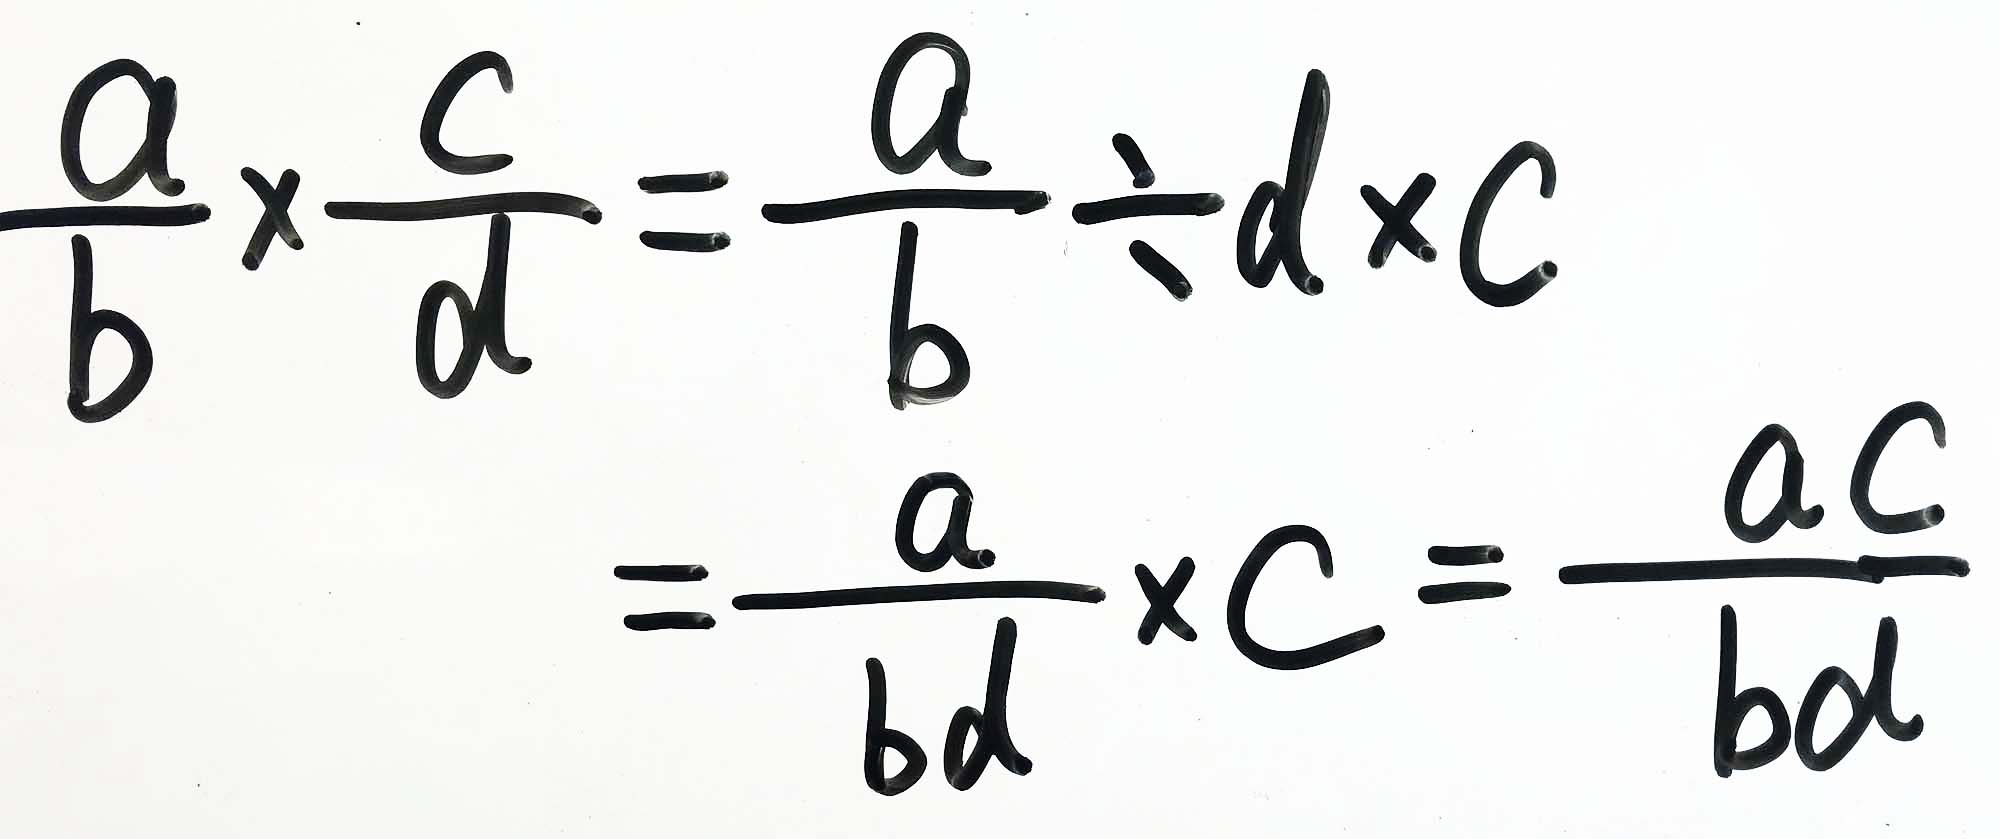 a/b × c/d = a/b ÷ d × c
= a/bd × c = ac/bd